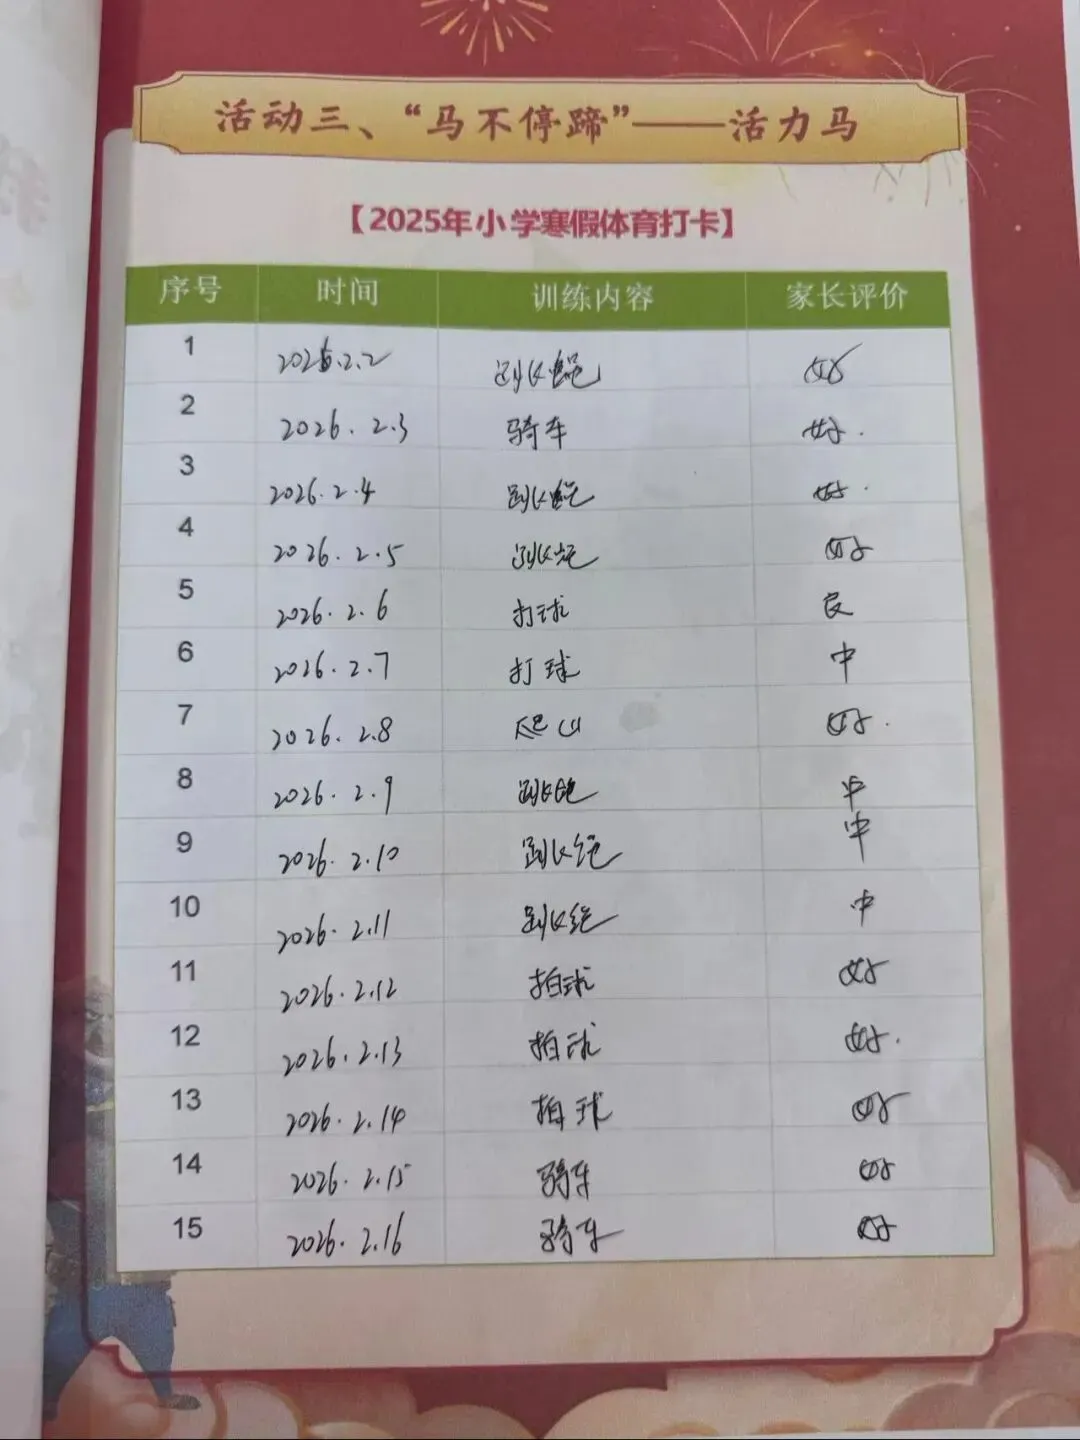 活动三、“马不停蹄”——活力马
【2025年小学寒假体育打卡】
序号 时间 训练内容 家长评价
1 2026.2.2 跳绳 好
2 2026.2.3 骑车 好.
3 2026.2.4 跳绳 好.
4 2026.2.5 跳绳 好
5 2026.2.6 打球 良
6 2026.2.7 打球 中
7 2026.2.8 爬山 好.
8 2026.2.9 跳绳 中
9 2026.2.10 跳绳 中
10 2026.2.11 跳绳 中
11 2026.2.12 拍球 好
12 2026.2.13 拍球 好.
13 2026.2.14 拍球 好
14 2026.2.15 骑车 好
15 2026.2.16 骑车 好